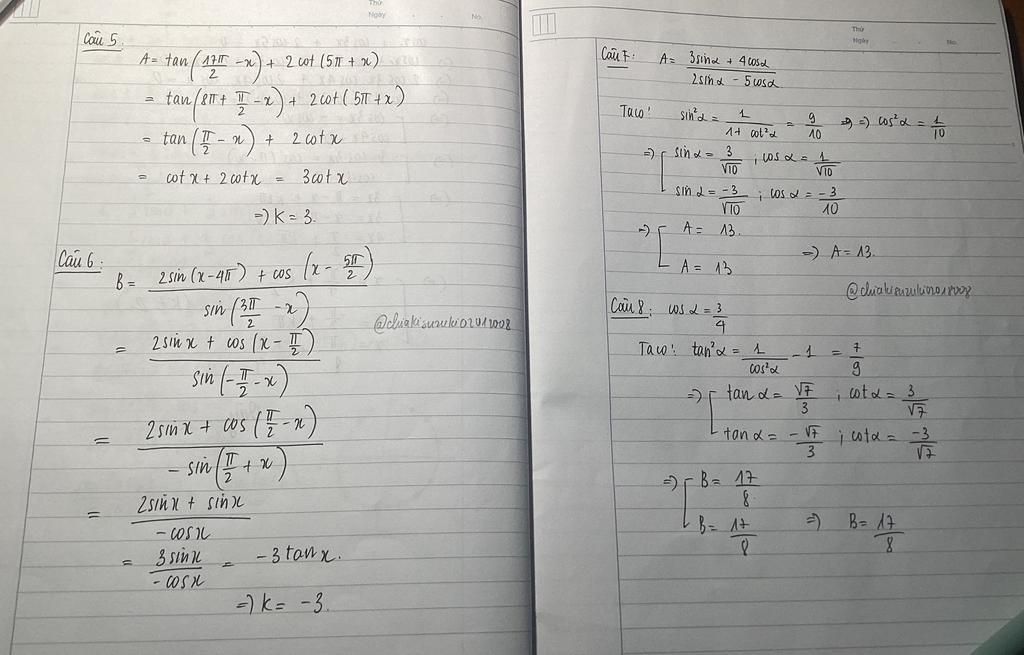 Thứ
Ngày No.
Câu 5.
A = tan(17π/2 - x) + 2 cot(5π + x)
= tan(8π + π/2 - x) + 2cot(5π + x)
= tan(π/2 - x) + 2 cotx
= cotx + 2cotx = 3cotx
=> K = 3.
Câu 6:
B = (2sin(x-4π) + cos(x - 5π/2)) / sin(3π/2 - x)
@chiakisuzuki02012008
= (2sinx + cos(x - π/2)) / sin(-π/2 - x)
= (2sinx + cos(π/2 - x)) / -sin(π/2 + x)
= (2sinx + sinx) / -cosx
= 3sinx / -cosx = -3tanx.
=> K = -3.
Thứ
Ngày No.
Câu 7: A = (3sinα + 4cosα) / (2sinα - 5cosα)
Ta có: sin²α = 1/(1+ cot²α) = 9/10 => => cos²α = 1/10
=> [ sinα = 3/√10 ; cosα = 1/√10
sinα = -3/√10 ; cosα = -3/10
=> [ A = 13.
A = 13 => A = 13.
@chiakisuzuki02012008
Câu 8: cosα = 3/4
Ta có: tan²α = 1/cos²α - 1 = 7/9
=> [ tanα = √7/3 ; cotα = 3/√7
tanα = -√7/3 ; cotα = -3/√7
=> [ B = 17/8
B = 17/8 => B = 17/8